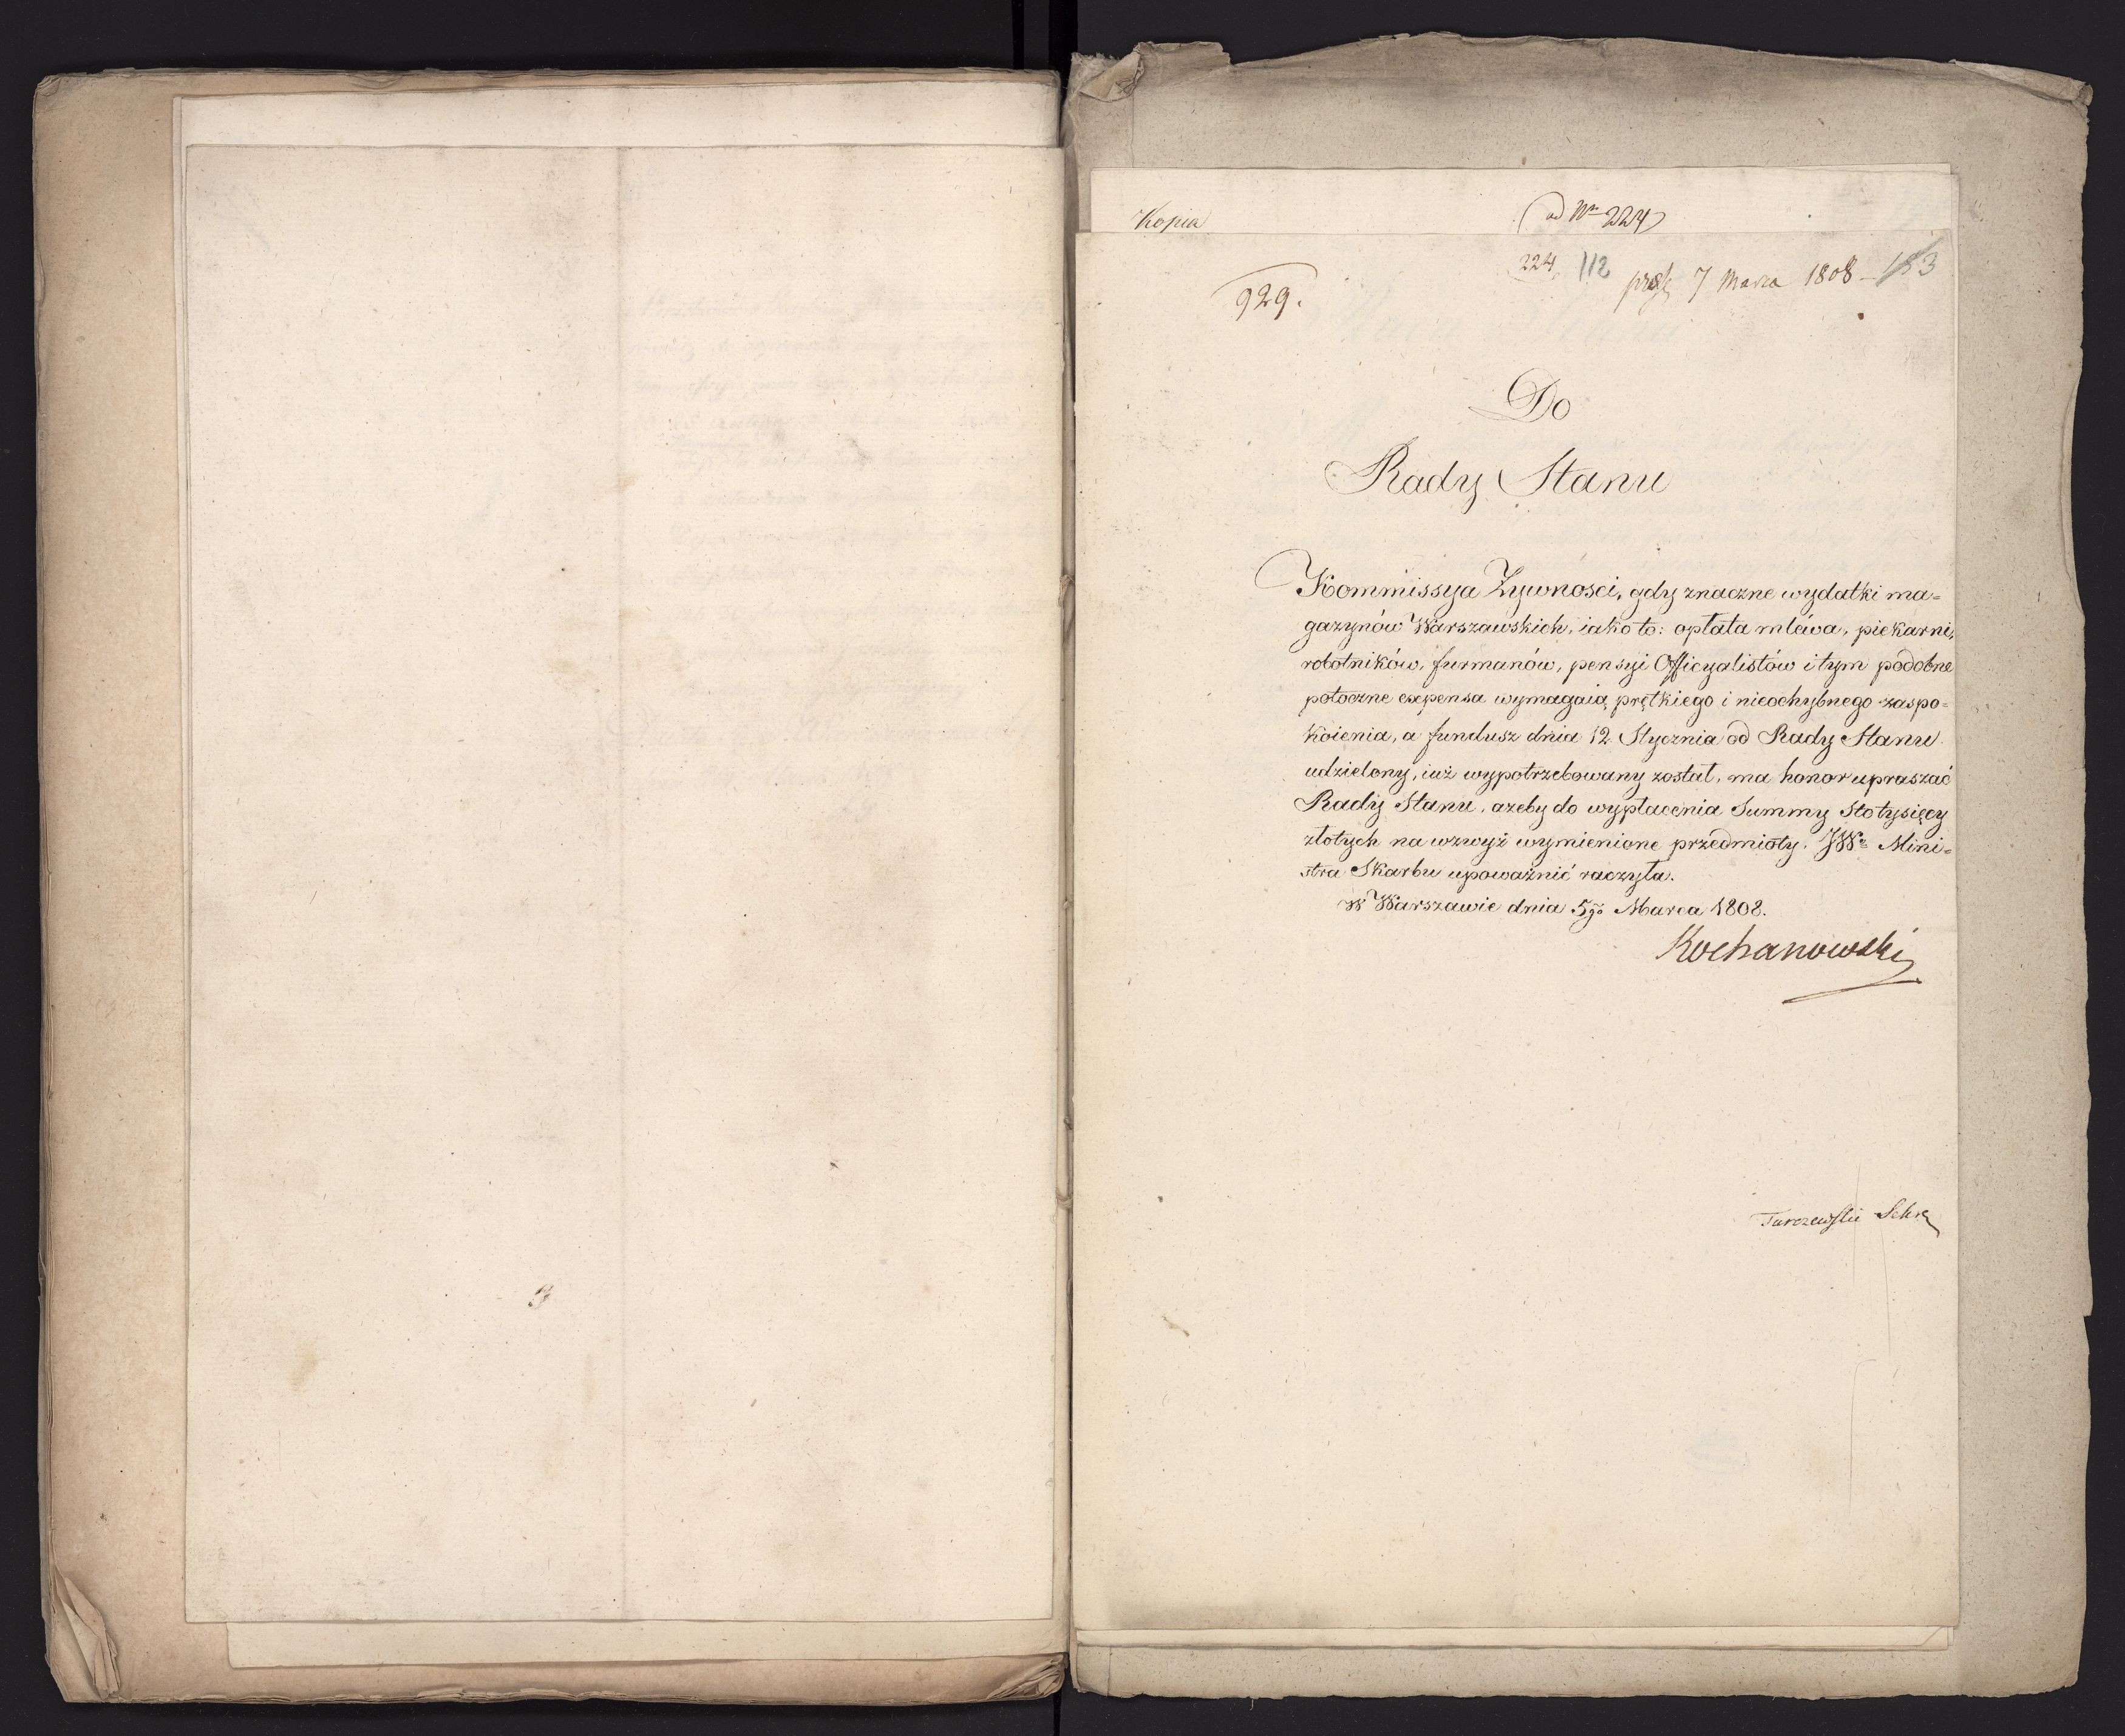 Kopia
(ad Nrm 224)
224. 112 prs. 7 Marca 1808 - 183
929.
Do
Rady Stanu
Kommissya Zywnosci, gdy znaczne wydatki ma=
gazynów Warszawskich, iako to: opłata mléwa, piekarni,
robotników, furmanów, pensyi Officyalistów i tym podobne
potoczne expensa wymagaią prętkiego i nieochybnego zaspo=
koienia, a fundusz dnia 12 Stycznia od Rady Stanu
udzielony, iuż wypotrzebowany został, ma honor upraszać
Rady Stanu, azeby do wypłacenia Summy Sto tysięcy
złotych na wzwyż wymienione przedmioty. JWo Mini=
stra Skarbu upoważnić raczyła.
W Warszawie dnia 5go Marca 1808.
Kochanowski
Tarczewski Sekr